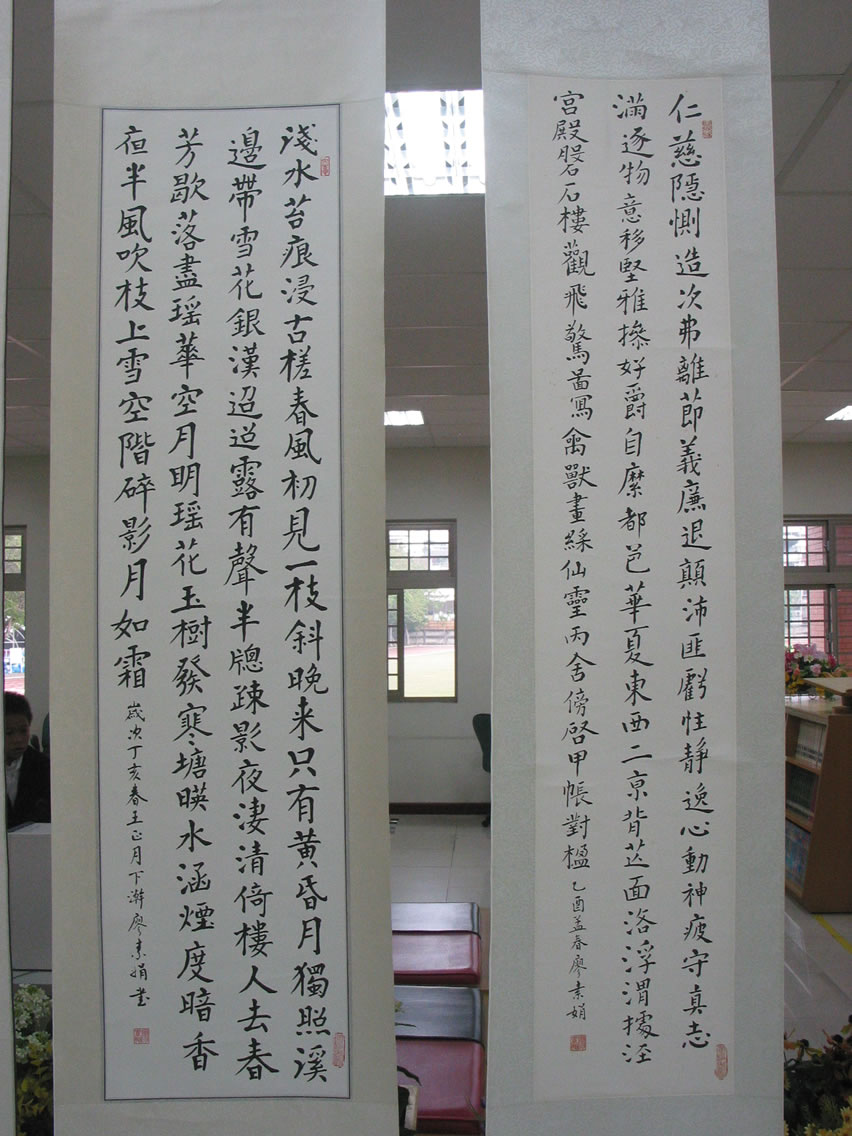 仁慈隱惻造次弗離節義廉退顛沛匪虧性靜逸心動神疲守真志
滿逐物意移堅雅操好爵自縻都邑華夏東西二京背芒面洛浮渭據涇
宮殿磐石樓觀飛驚啚寫禽獸畫綵仙靈丙舍傍啓甲帳對楹 乙酉孟春廖素娟
淺水苔痕浸古槎春風初見一枝斜晚来只有黃昏月獨照溪
邊帶雪花銀漢迢迢露有聲半牕疎影夜淒清倚樓人去春
芳歇落盡瑶華空月明瑶花玉樹發寒塘暎水涵煙度暗香
夜半風吹枝上雪空階碎影月如霜 歲次丁亥春王正月下澣廖素娟書